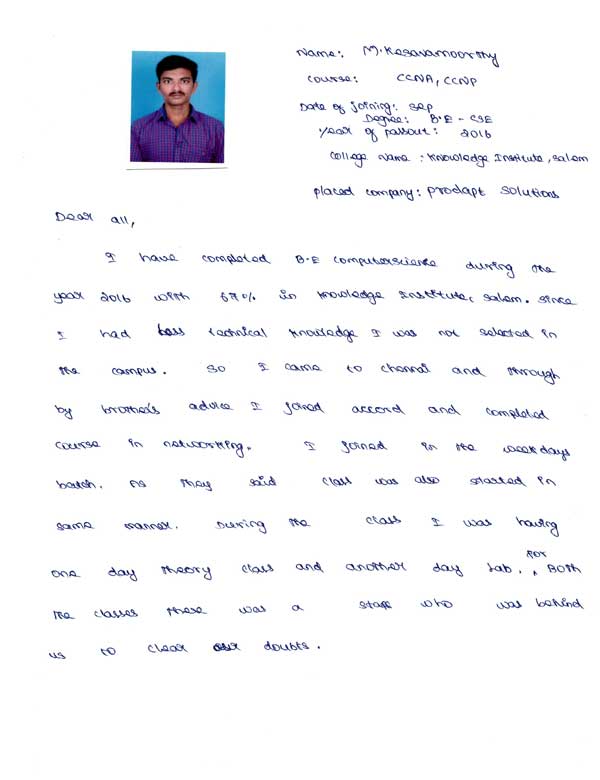 Name: M.Kesavamoorthy
Course: CCNA, CCNP
Date of joining: Sep
Degree: B.E - CSE
Year of passout: 2016
College name : Knowledge Institute, Salem
placed company: Prodapt Solutions
Dear all,
I have completed B.E Computerscience during the
year 2016 with 67% in Knowledge Institute, Salem. Since
I had less technical knowledge I was not selected in
the campus. So I came to chennai and through
by brother's advice I joined accord and completed
course in networking. I joined in the weekdays
batch. As they said class was also started in
same manner. During the class I was having
one day theory class and another day lab. For Both
the classes there was a staff who was behind
us to clear our doubts.